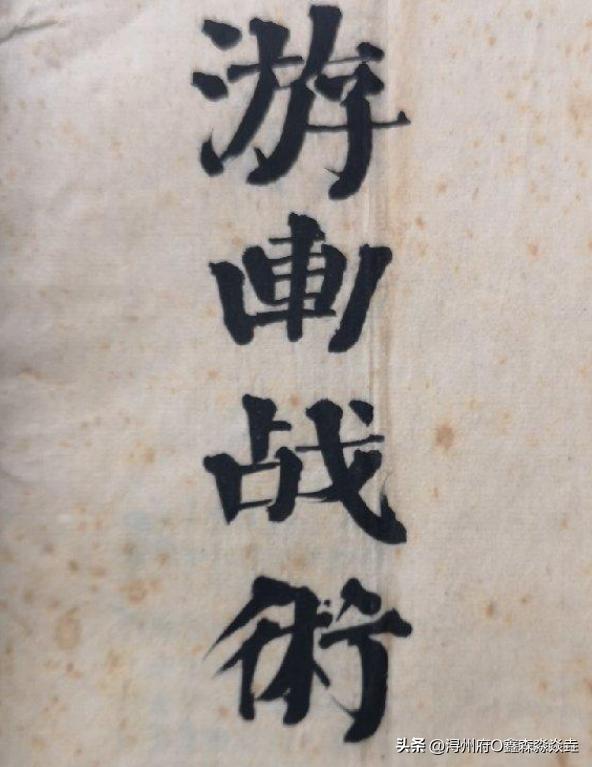 游战術
头条 @浔州府O鑫森淼焱垚